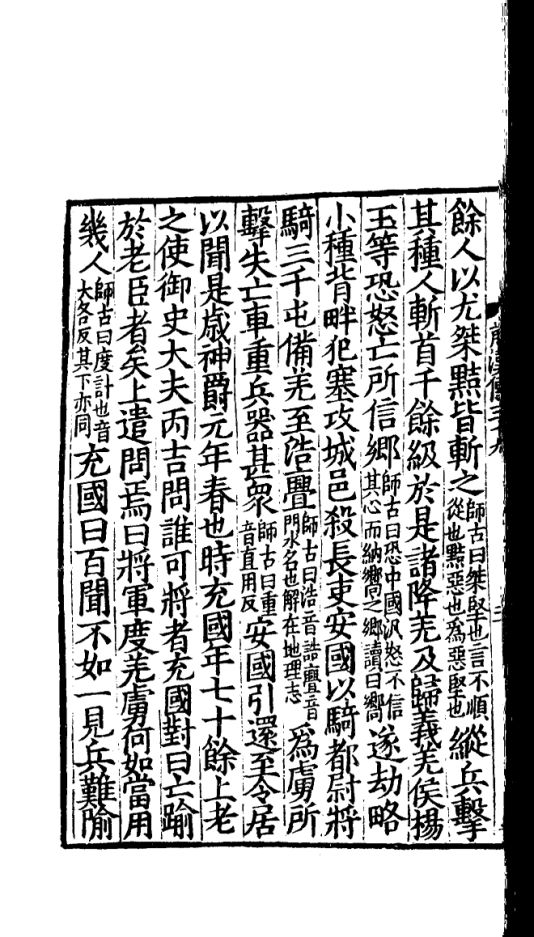 餘人以尤桀黠皆斬之師古曰桀堅也言不順從也黠惡也爲惡堅也縱兵擊
其種人斬首千餘級於是諸降羌及歸義羌侯楊
玉等恐怒亡所信鄉師古曰恐中國汎怒不信其心而納嚮之鄉讀曰嚮遂劫略
小種背畔犯塞攻城邑殺長吏安國以騎都尉將
騎三千屯備羌至浩亹師古曰浩音誥亹音門水名也解在地理志爲虜所
擊失亡車重兵器甚衆師古曰重音直用反安國引還至令居
以聞是歲神爵元年春也時充國年七十餘上老
之使御史大夫丙吉問誰可將者充國對曰亡踰
於老臣者矣上遣問焉曰將軍度羌虜何如當用
幾人師古曰度計也音大各反其下亦同充國曰百聞不如一見兵難隃